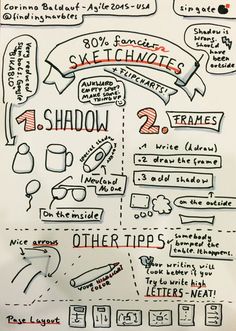 Corinna Baldauf - Agile 2015 - USA
@findingmarbles
sipgate
80% fancier
SKETCHNOTES
& FLIPCHARTS!
Shadow is
wrong.
Should
have
been
outside
Very reduced
symbols: Google
"BIKABLO"
AWKWARD
EMPTY SPOT?
MAKE SOME-
THING UP!
1. SHADOW
2. FRAMES
1 Write (/draw)
2 draw the frame
3 add shadow
Neuland
No. One
On the inside
on the outside
OTHER TIPPS
Nice arrows
somebody
bumped the
table. It happens.
Your writing will
look better if you
Try to write high
LETTERS - NEAT!
YOUR HIGHLIGHT
COLOR
Page Layout